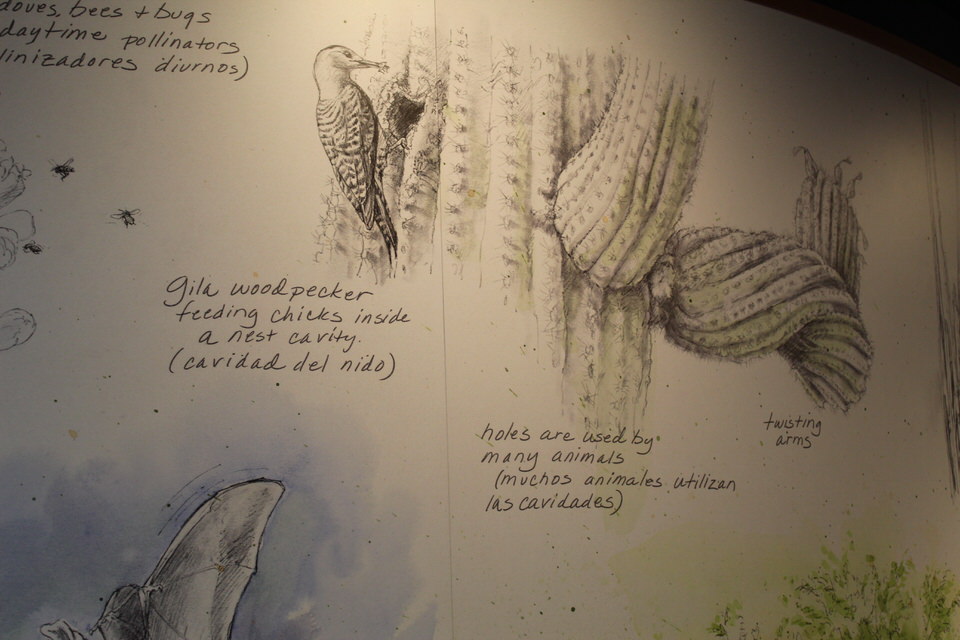 doves, bees + bugs
daytime pollinators
linizadores diurnos)
Gila woodpecker
feeding chicks inside
a nest cavity.
(cavidad del nido)
holes are used by
many animals
(muchos animales utilizan
las cavidades)
twisting
arms